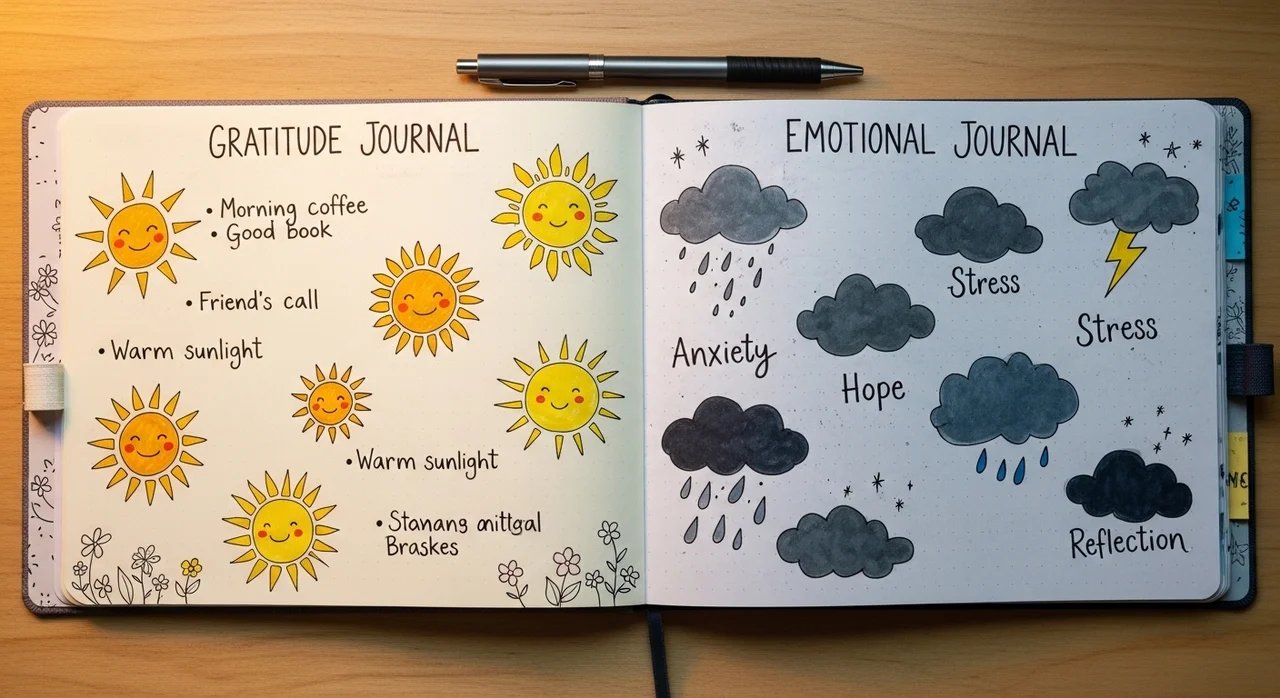 GRATITUDE JOURNAL
• Morning coffee
• Good book
• Friend's call
• Warm sunlight
• Warm sunlight
• Stanang anittgal
Braskes
EMOTIONAL JOURNAL
Stress
Stress
Anxiety
Hope
Reflection